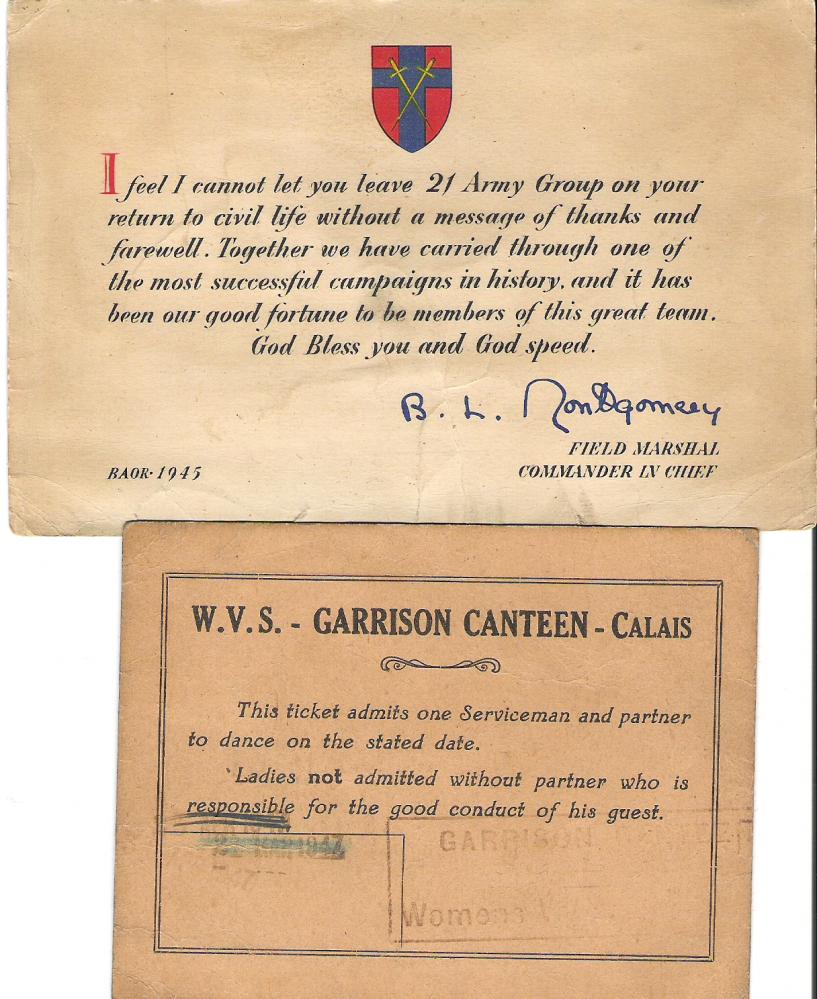 I feel I cannot let you leave 21 Army Group on your
return to civil life without a message of thanks and
farewell. Together we have carried through one of
the most successful campaigns in history, and it has
been our good fortune to be members of this great team.
God Bless you and God speed.
B. L. Montgomery
FIELD MARSHAL
BAOR·1945 COMMANDER IN CHIEF
W.V.S. - GARRISON CANTEEN - CALAIS
This ticket admits one Serviceman and partner
to dance on the stated date.
Ladies not admitted without partner who is
responsible for the good conduct of his guest.
GARRISON
Womens